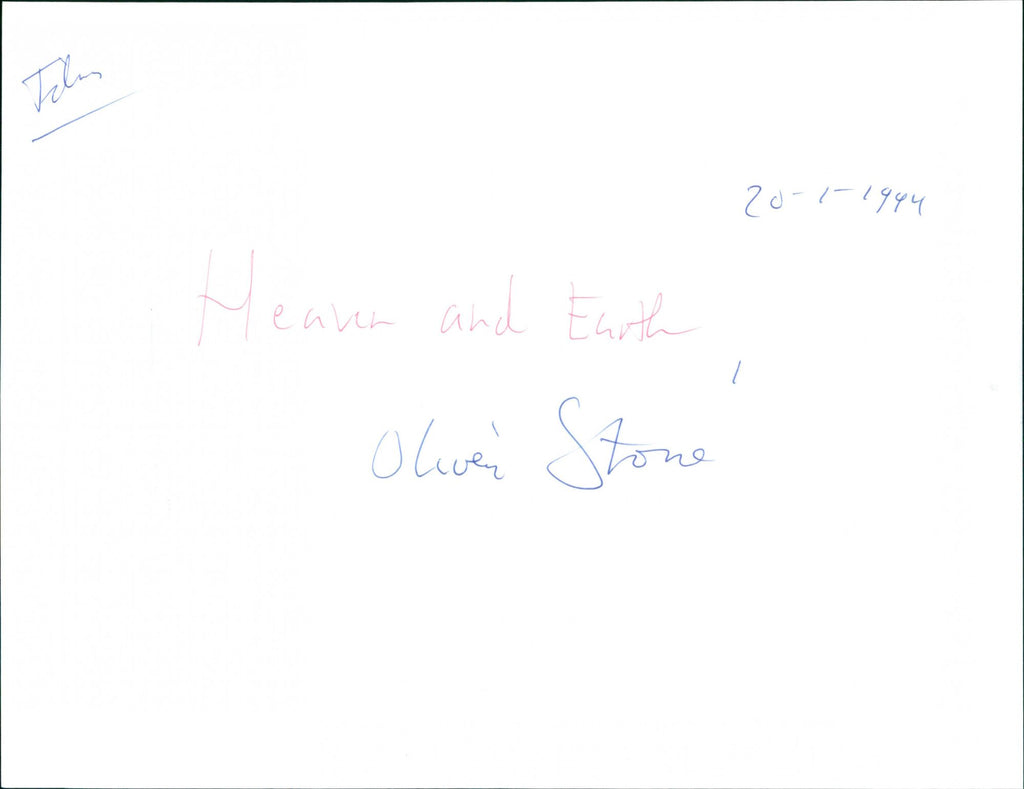 20-1-1994
Heaven and Earth
Oliver Stone